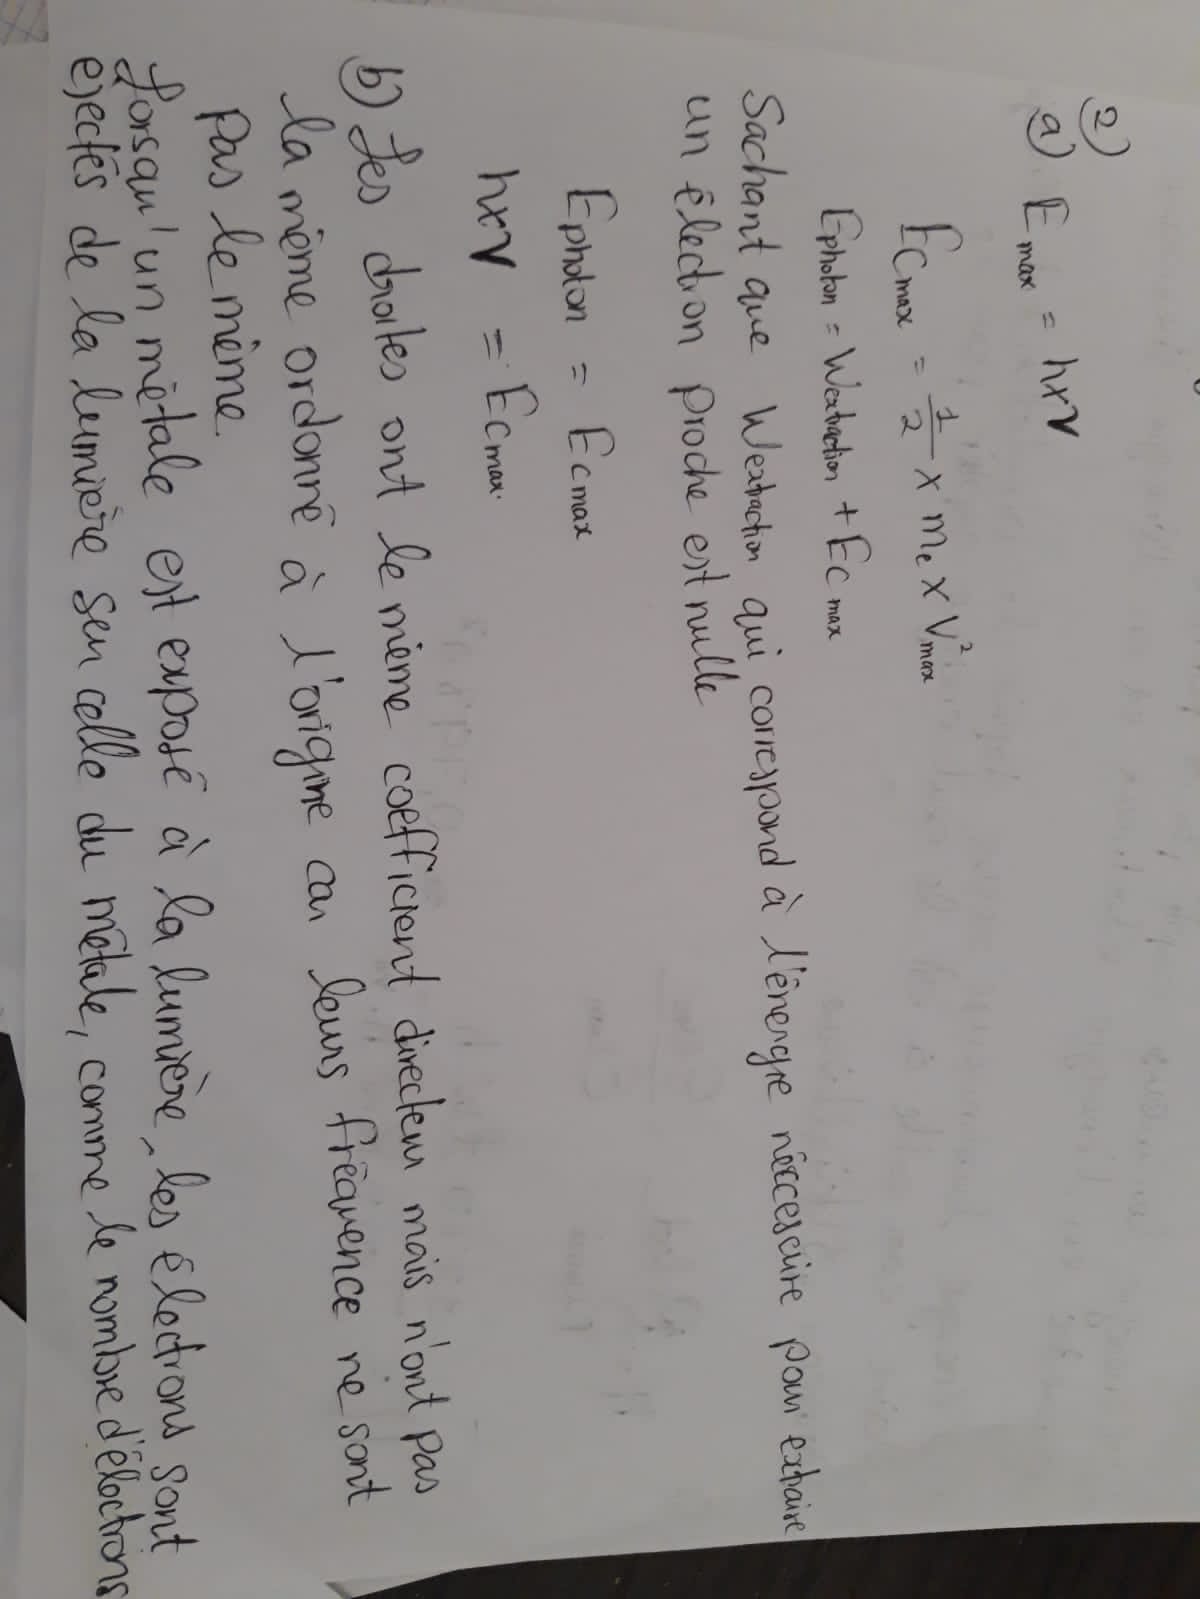 2)
a) Emax = h×ν
Ecmax = 1/2 × me × V²max
Ephoton = Wextraction + Ecmax
Sachant que Wextraction qui correspond à l'énergie néccessaire pour extraire
un électron proche est nulle
Ephoton = Ecmax
h×ν = Ecmax.
b) Les droites ont le même coefficient directeur mais n'ont pas
la même ordonné à l'origine car leurs fréquence ne sont
pas le même.
Lorsqu'un métale est exposé à la lumière, les électrons sont
ejectés de la lumière seu celle du métale, comme le nombre d'électrons